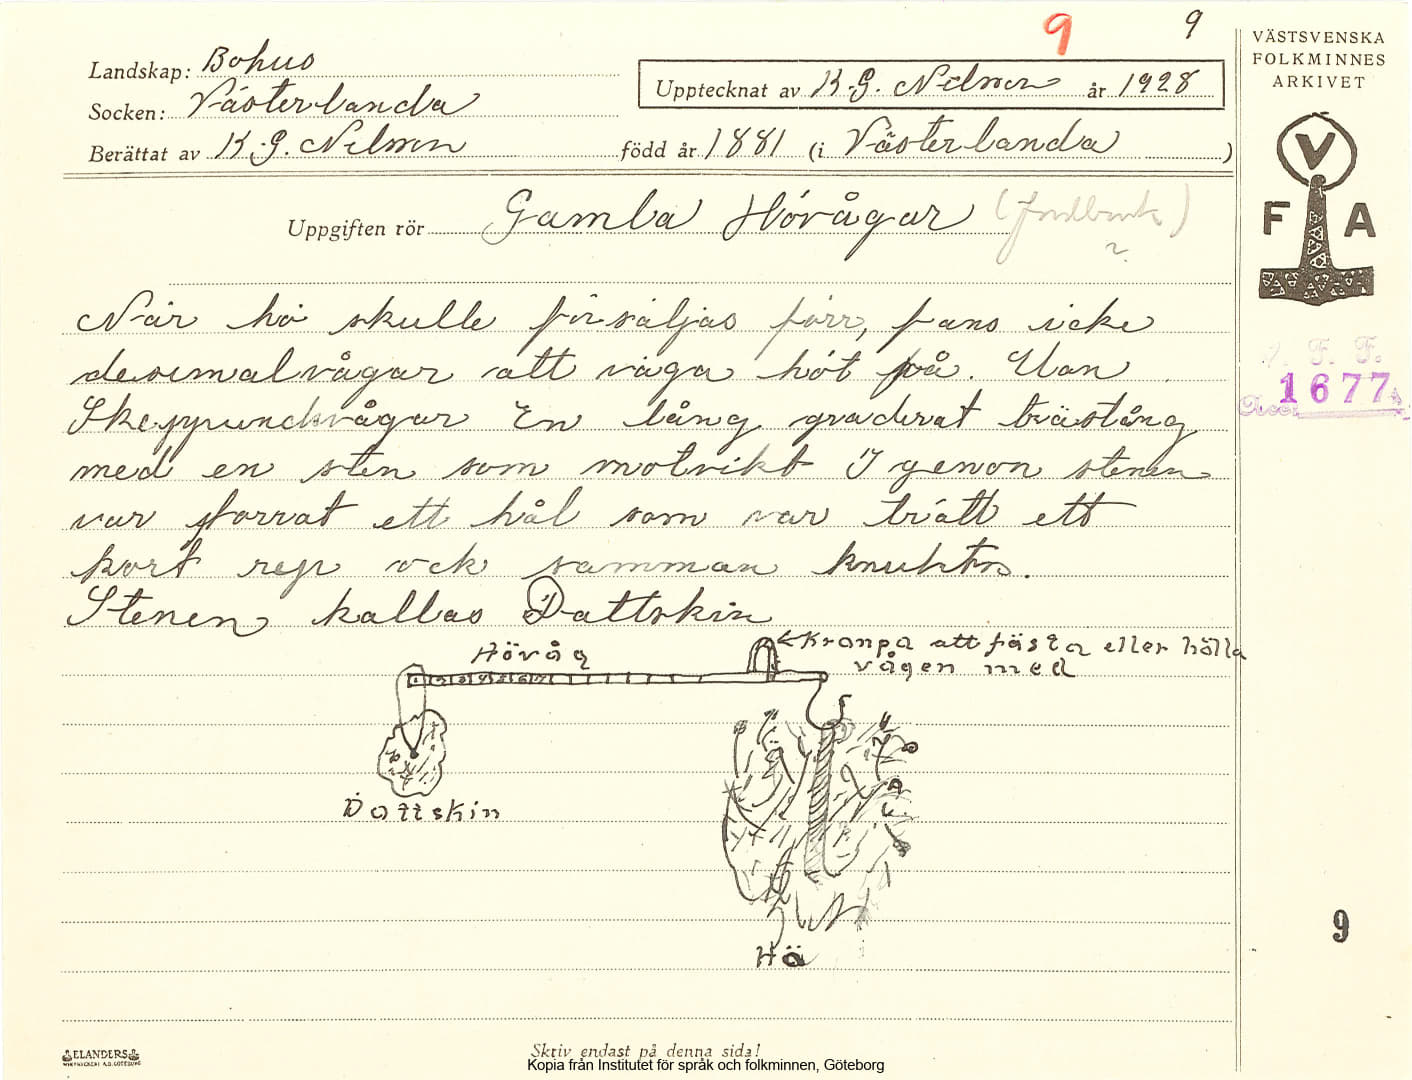 9 9
VÄSTSVENSKA
FOLKMINNES
ARKIVET
Landskap: Bohus
Upptecknat av K.G. Nilson år 1928
Socken: Västerlanda
Berättat av K.G. Nilson född år 1881 (i Västerlanda)
V
F A
Uppgiften rör Gamla Hövågar
När hö skulle försäljas förr, fans icke
desimalvågar att väga höt på. Utan
Skeppundsvågar En lång graderat trästång
med en sten som motvikt I genon stenen
var borrat ett hål som var trätt ett
kort rep ock samman knuktos.
Stenen kallas Dattskin
V. F. F.
Acc. 1677
Hövåg
Krampa att fästa eller hålla
vågen med
Dattskin
Hö
9
ELANDERS
Skriv endast på denna sida!
Kopia från Institutet för språk och folkminnen, Göteborg